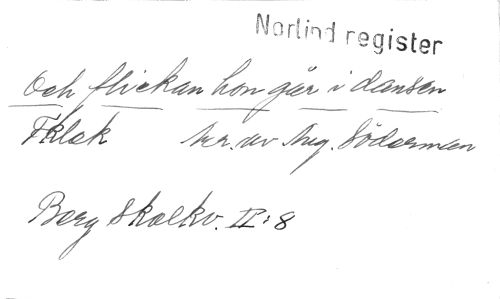 Norlind register
Och flickan hon går i dansen
F klak Arr. av Aug. Söderman
Berg Skolkv. II:8